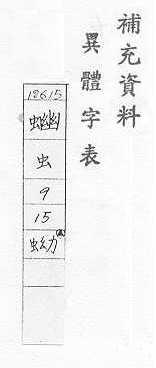 補充資料
異體字表
12615
虫
9
15